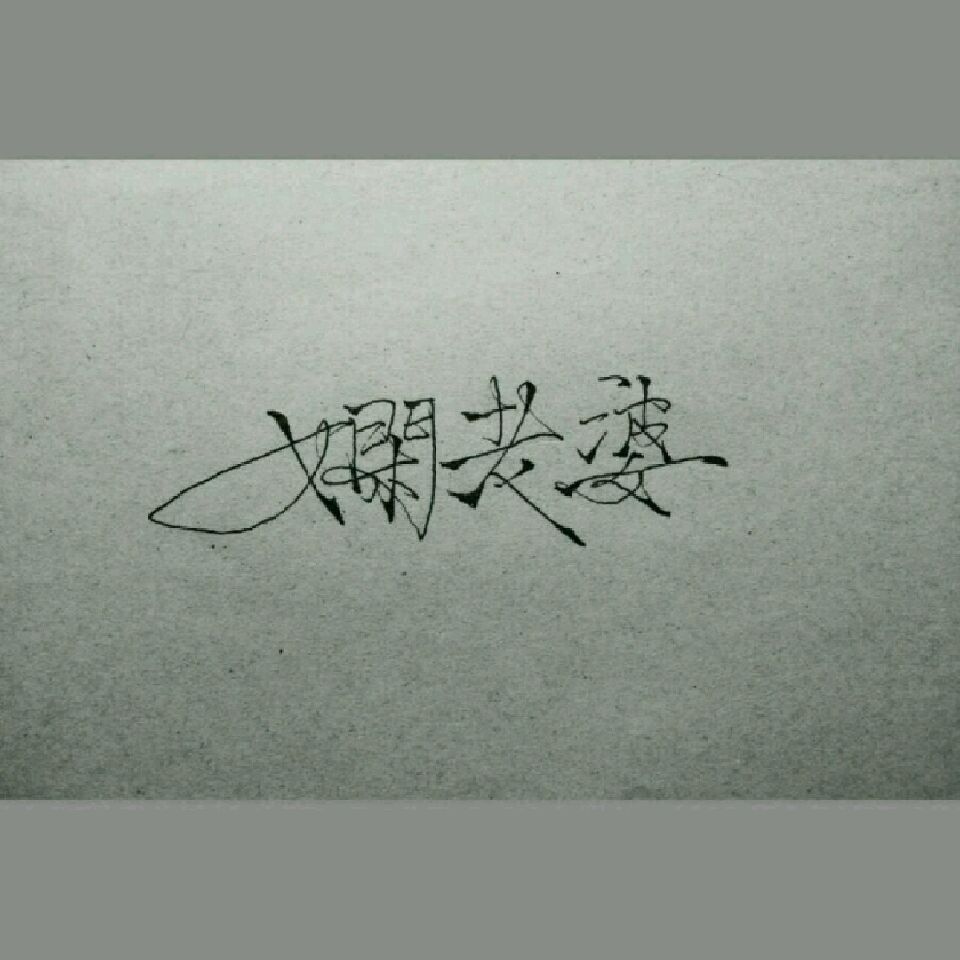 嫻老婆